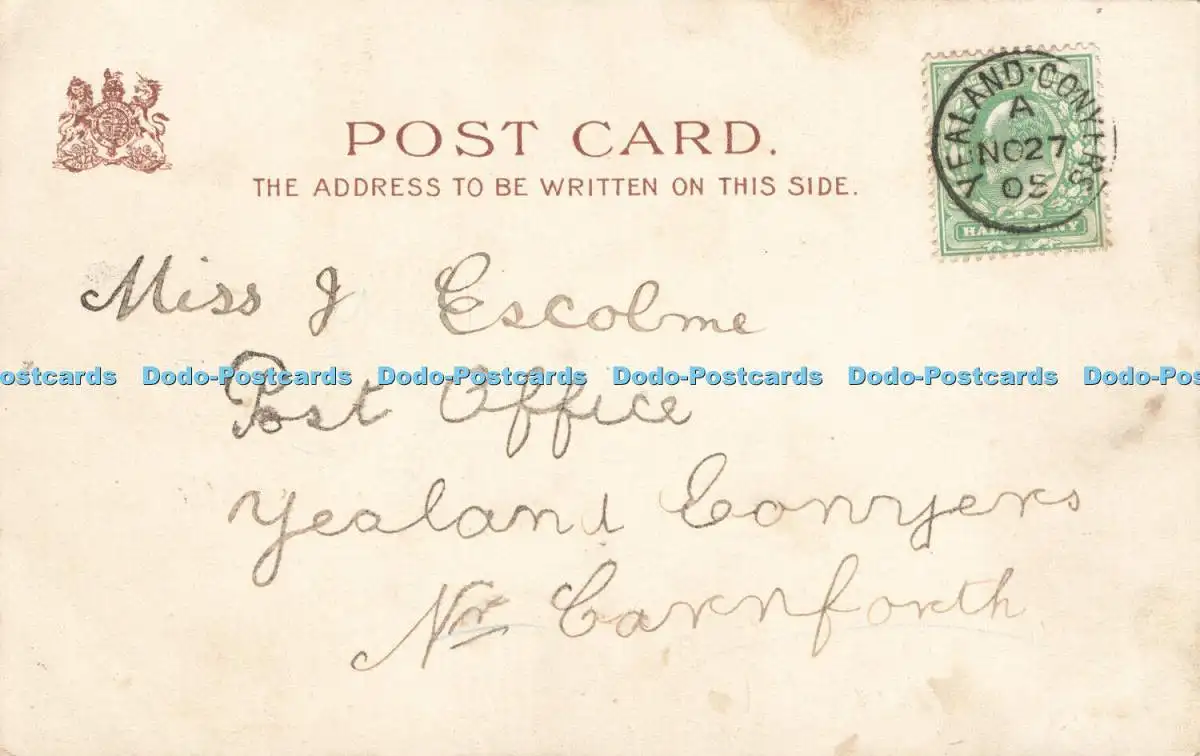 YEALAND·CONYERS
A
NO 27
05
HALFPENNY
POST CARD.
THE ADDRESS TO BE WRITTEN ON THIS SIDE.
Miss J Escolme
ostcards Dodo-Postcards Dodo-Postcards Dodo-Postcards Dodo-Postcards Dodo-Pos
Post Office
Yealand Conyers
Nr Carnforth